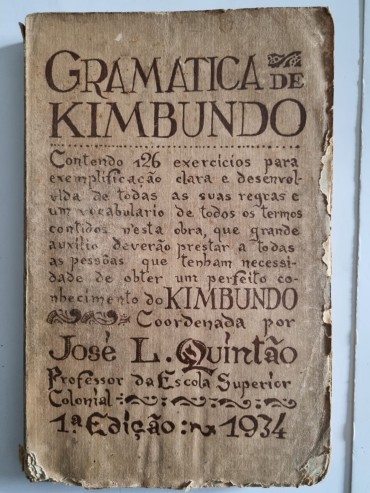 GRAMATICA DE
KIMBUNDO
Contendo 126 exercicios para
exemplificação clara e desenvol-
vida de todas as suas regras e
um vocabulário de todos os termos
contidos n'esta obra, que grande
auxílio deverão prestar a todas
as pessôas que tenham necessi-
dade de obter um perfeito co-
nhecimento do KIMBUNDO
Coordenada por
José L. Quintão
Professor da Escola Superior
Colonial
1.ª Edição: 1934